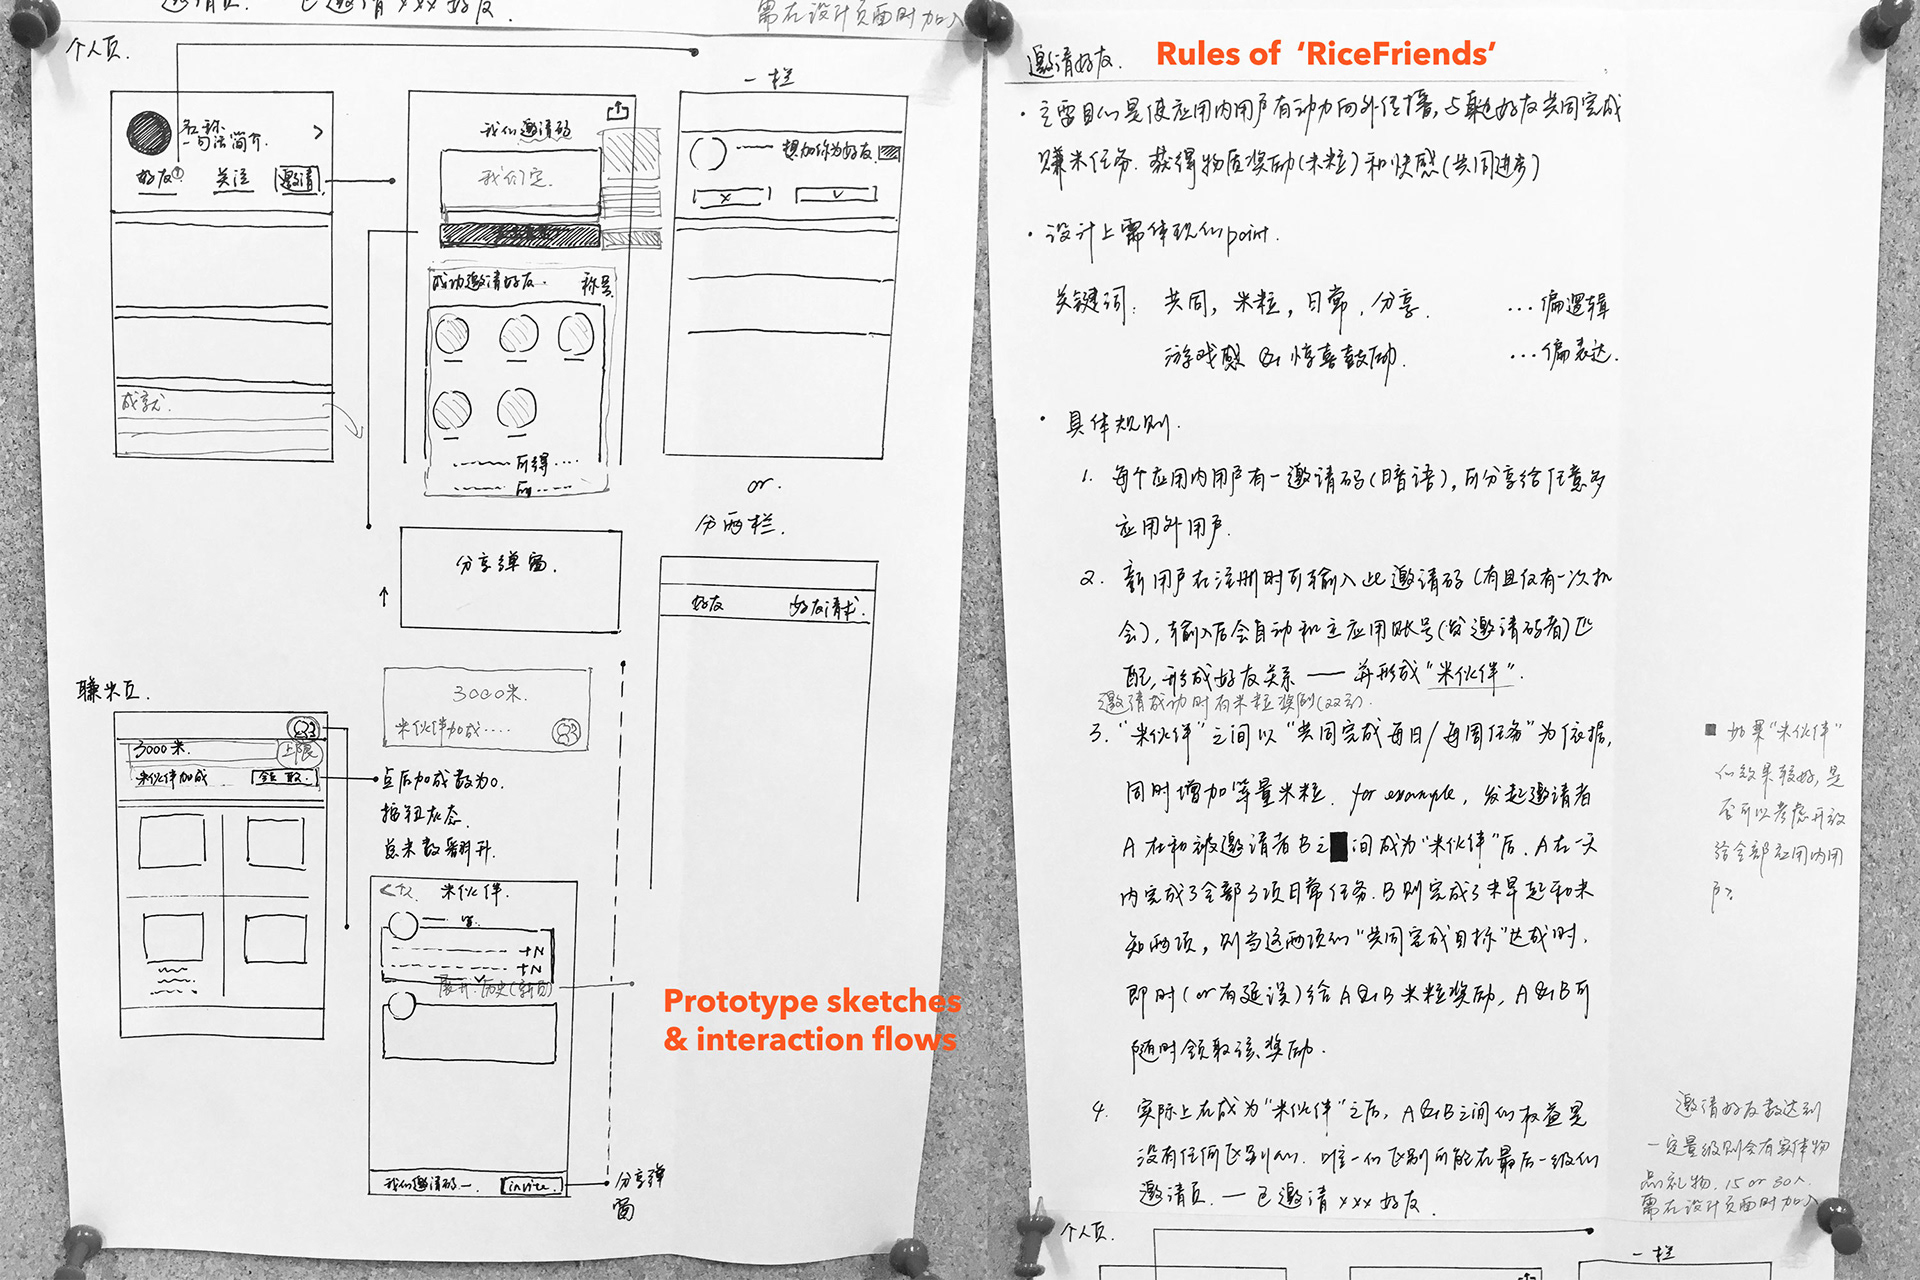 邀请页. 已邀请 xxx 好友.
需在设计页面时加入
个人页.
名称
一句话简介.
>
好友①
关注
邀请
成就.
我的邀请码
我们定.
成功邀请好友.
称号
所得
一栏
想加你为好友
x
v
or.
分两栏.
好友
好友请求.
分享弹窗.
↑
赚米页.
3000米.
上限
米伙伴加成
领取
3000米.
米伙伴加成....
点后加成数为0.
按钮灰态.
总米数翻升.
<
米伙伴.
+N
+N
展开 历史(新的)
我的邀请码—.
invite.
分享弹
窗
Prototype sketches
& interaction flows
邀请好友.
Rules of 'RiceFriends'
· 主需目的是使应用内用户有动力向外传播,与其他好友共同完成
赚米任务. 获得物质奖励(米粒)和快感(共同进步)
· 设计上需体现的point.
关键词: 共同, 米粒, 日常, 分享.
...偏逻辑
游戏感 & 惊喜鼓励.
...偏表达.
· 具体规则.
1. 每个应用内用户有一邀请码(暗语),可分享给任意多
应用外用户.
2. 新用户在注册时可输入此邀请码(有且仅有一次机
会),输入后会自动和主应用账号(发邀请码者)匹
配,形成好友关系 —— 并形成"米伙伴".
邀请成功时有米粒奖励(双方).
3. "米伙伴"之间以"共同完成每日/每周任务"为依据,
同时增加等量米粒. for example, 发起邀请者
A 在和被邀请者B之间成为"米伙伴"后. A在一天
内完成了全部3项日常任务. B则完成了米早起和米
知两项, 则当这两项的"共同完成目标"达成时,
即时(or有延误)给A&B米粒奖励, A&B可
随时领取该奖励.
4. 实际上在成为"米伙伴"之后, A&B之间的权益是
没有任何区别的. 唯一的区别可能在最后一级的
邀请页. — 已邀请xxx好友.
■ 如果"米伙伴"
的效果较好, 是
否可以考虑开放
给全部应用内用
户?
邀请好友数达到
一定量级则会有实体物
品礼物. 15 or 30人.
需在设计页面时加入
个人页.
一栏